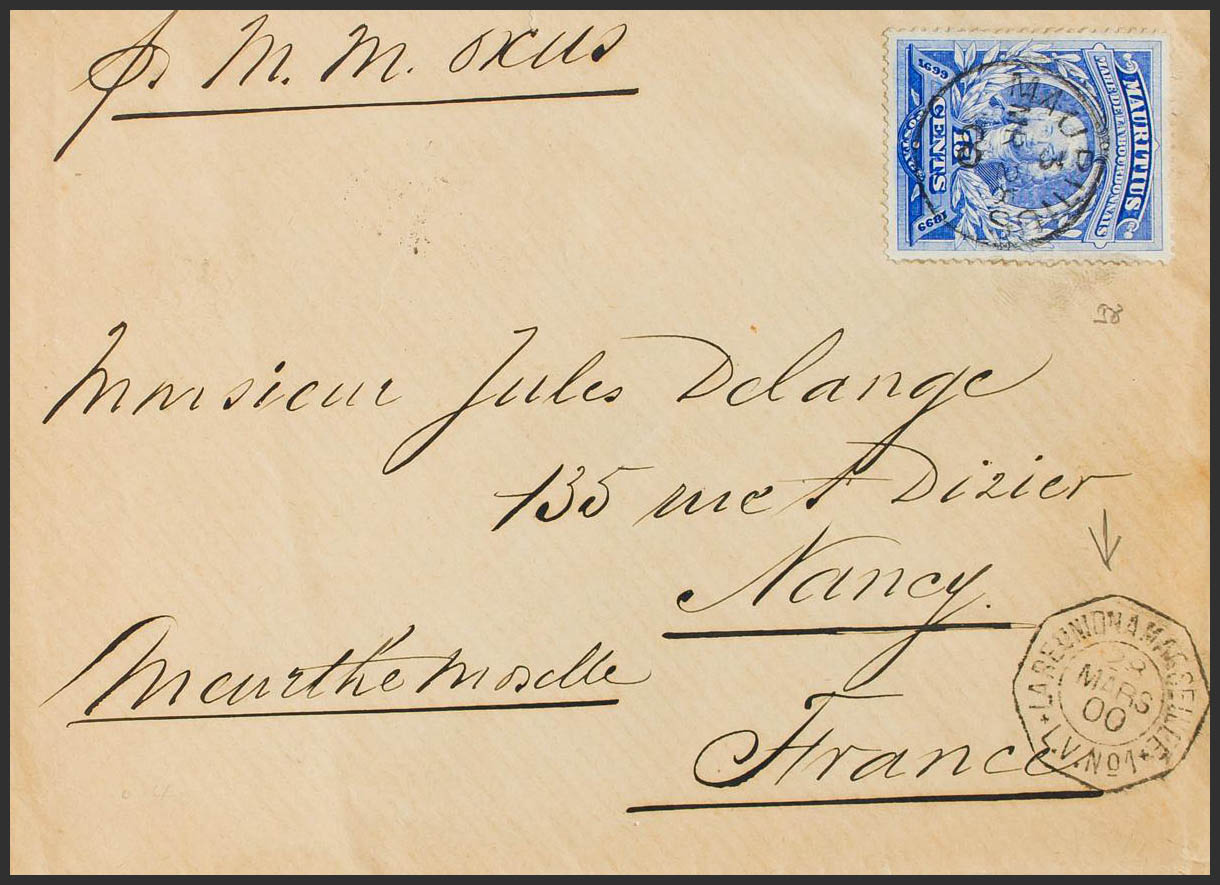 pr M. M. Oxus
MAURITIUS
MAHÉ DE LABOURDONNAIS
1699
1899
POSTAGE
15
CENTS
MAURITIUS
MR
Monsieur Jules Delange
135 rue St Dizier
Nancy.
Meurthe Moselle
France
LA REUNION A MARSEILLE
MARS
00
L.V. No 1